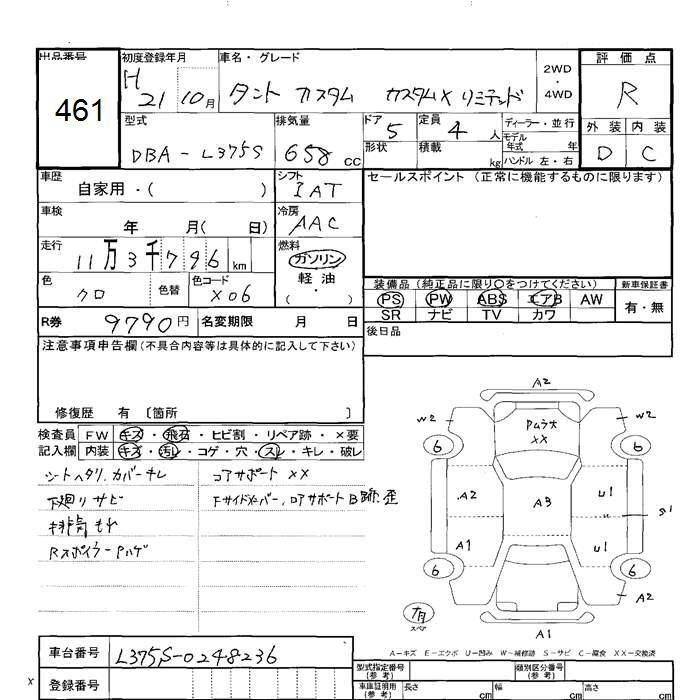 出品番号 初度登録年月 車名・グレード 2WD・4WD 評価点
461 H 21 10月 タント カスタム カスタムX リミテッド R
型式 排気量 ドア 5 定員 4 人 ディーラー・並行 外装 内装
DBA-L375S 658 cc 形状 積載 kg モデル年式 年 D C
ハンドル 左・右
車歴 自家用・( ) シフト IAT セールスポイント (正常に機能するものに限ります)
車検 年 月( 日) 冷房 AAC
走行 11万3千796 km 燃料 ガソリン・軽油・( )
色 クロ 色替 色コード X06
装備品 (純正品に限り○をつけてください) 新車保証書
PS PW ABS エアB AW 有・無
SR ナビ TV カワ
R券 9790円 名変期限 月 日 後日品
注意事項申告欄 (不具合内容等は具体的に記入して下さい)
修復歴 有 〔箇所 〕
検査員 FW キズ・飛石・ヒビ割・リペア跡・×要
記入欄 内装 キズ・汚レ・コゲ・穴・スレ・キレ・破レ
シートヘタリ、カバーキレ コアサポート XX
下廻りサビ
排気もれ
RスポイラーPハゲ
A2
W2 W2
PムラX
XX
6 6
A2 A3 U1 S1
A1 U1
6 6
A2
有
スペア
A1
A-キズ E-エクボ U-凹み W-補修跡 S-サビ C-腐食 XX-交換済
車台番号 L375S-0248236
登録番号
型式指定番号(参考) 類別区分番号(参考)
車庫証明用(参考) 長さ cm 幅 cm 高さ cm